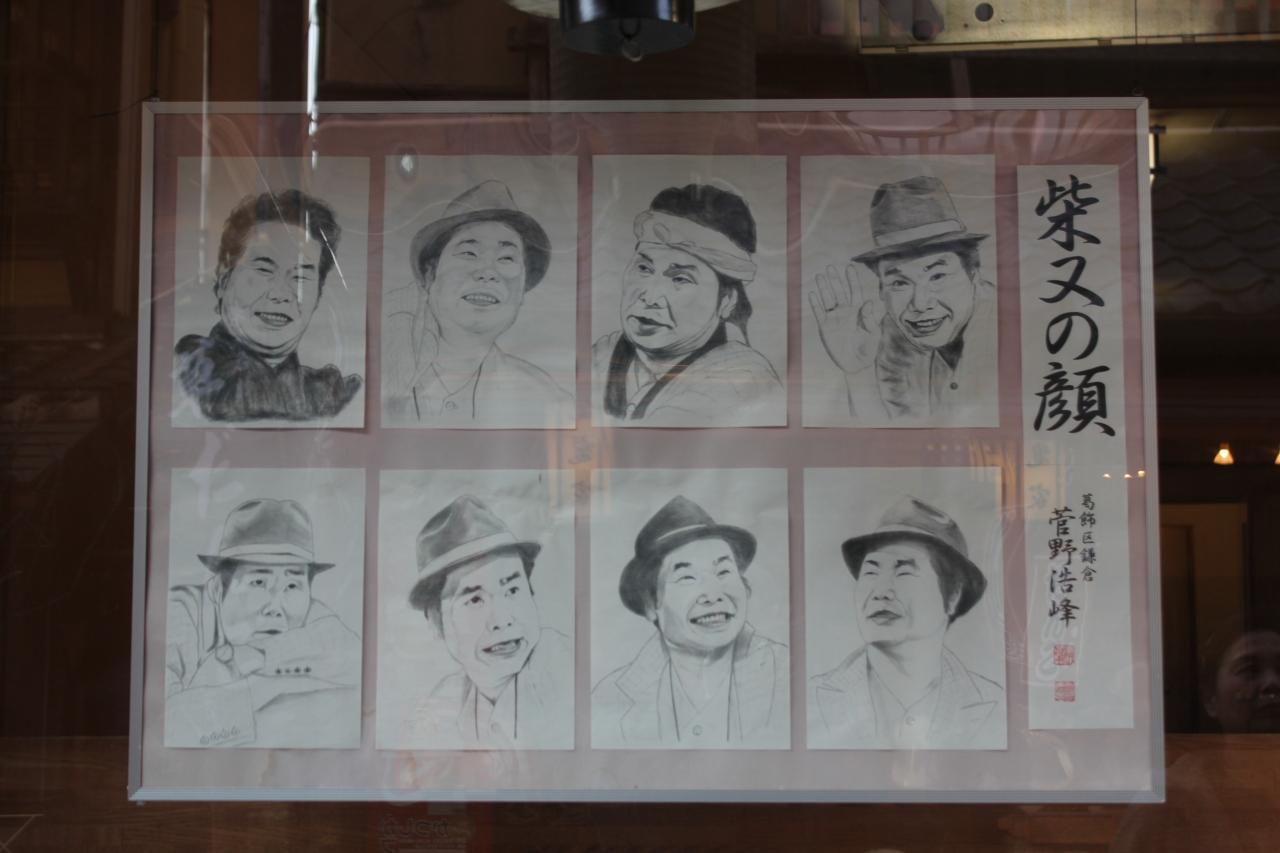 柴又の顔
葛飾区鎌倉
菅野浩峰